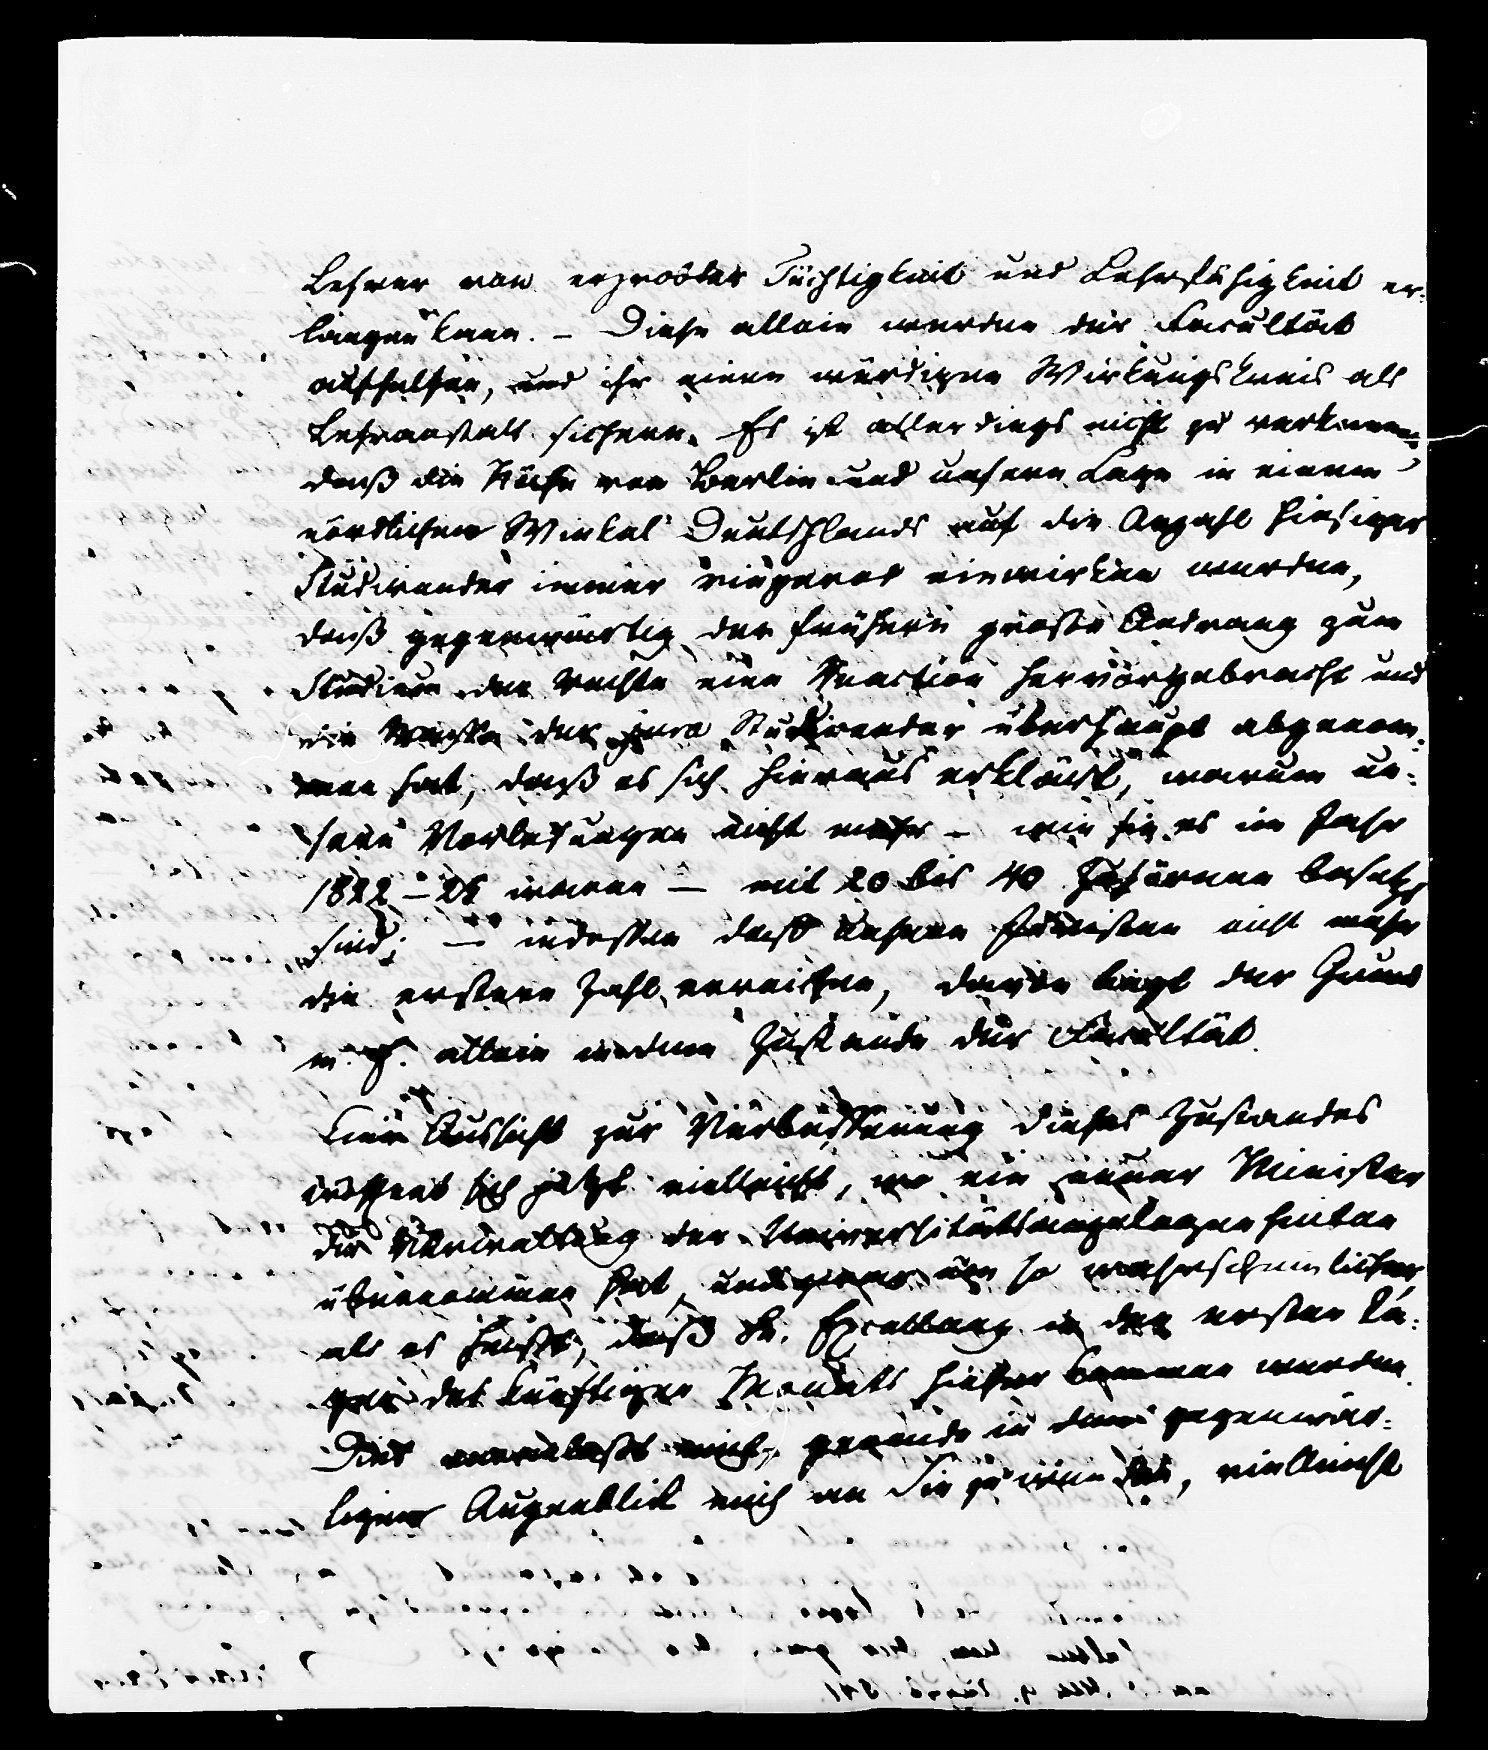 Lehrer von erprobter Tüchtigkeit und Lehrfähigkeit er-
langen kann. – Diese allein werden der Facultät
aufhelfen, und ihr einen würdigen Wirkungskreis als
Lehranstalt sichern. Es ist allerdings nicht zu verkennen,
daß die Nähe von Berlin und unsere Lage in einem
nördlichen Winkel Deutschlands auf die Anzahl hiesiger
Studirender immer einwirken werden,
daß gegenwärtig der frühere große Andrang zum
Studium der Rechte eine Reaction hervorgebracht und
die Masse der jura Studirender überhaupt abgenom-
men hat, daß es sich hieraus erklärt, warum un-
sere Vorlesungen nicht mehr – wie sie es im Jahr
1822–25 waren – mit 20 bis 40 Zuhörern besetzt
sind; – indessen daß unsere Juristen nicht mehr
die erstere Zahl erreichen, davon liegt der Grund
m. E. allein in dem Zustande der Facultät.
Eine Aussicht zur Verbesserung dieses Zustandes
eröffnet sich jetzt vielleicht, wo ein neuer Minister
die Verwaltung der Universitätsangelegenheiten
übernommen hat, und zwar um so wahrscheinlicher
als es heißt, daß Sr. Excellenz in den ersten Ta-
gen des künftigen Monats hieher kommen werden.
Dies veranlaßt mich, gerade in dem gegenwär-
tigen Augenblick mich an Sie zu wenden, vielleicht